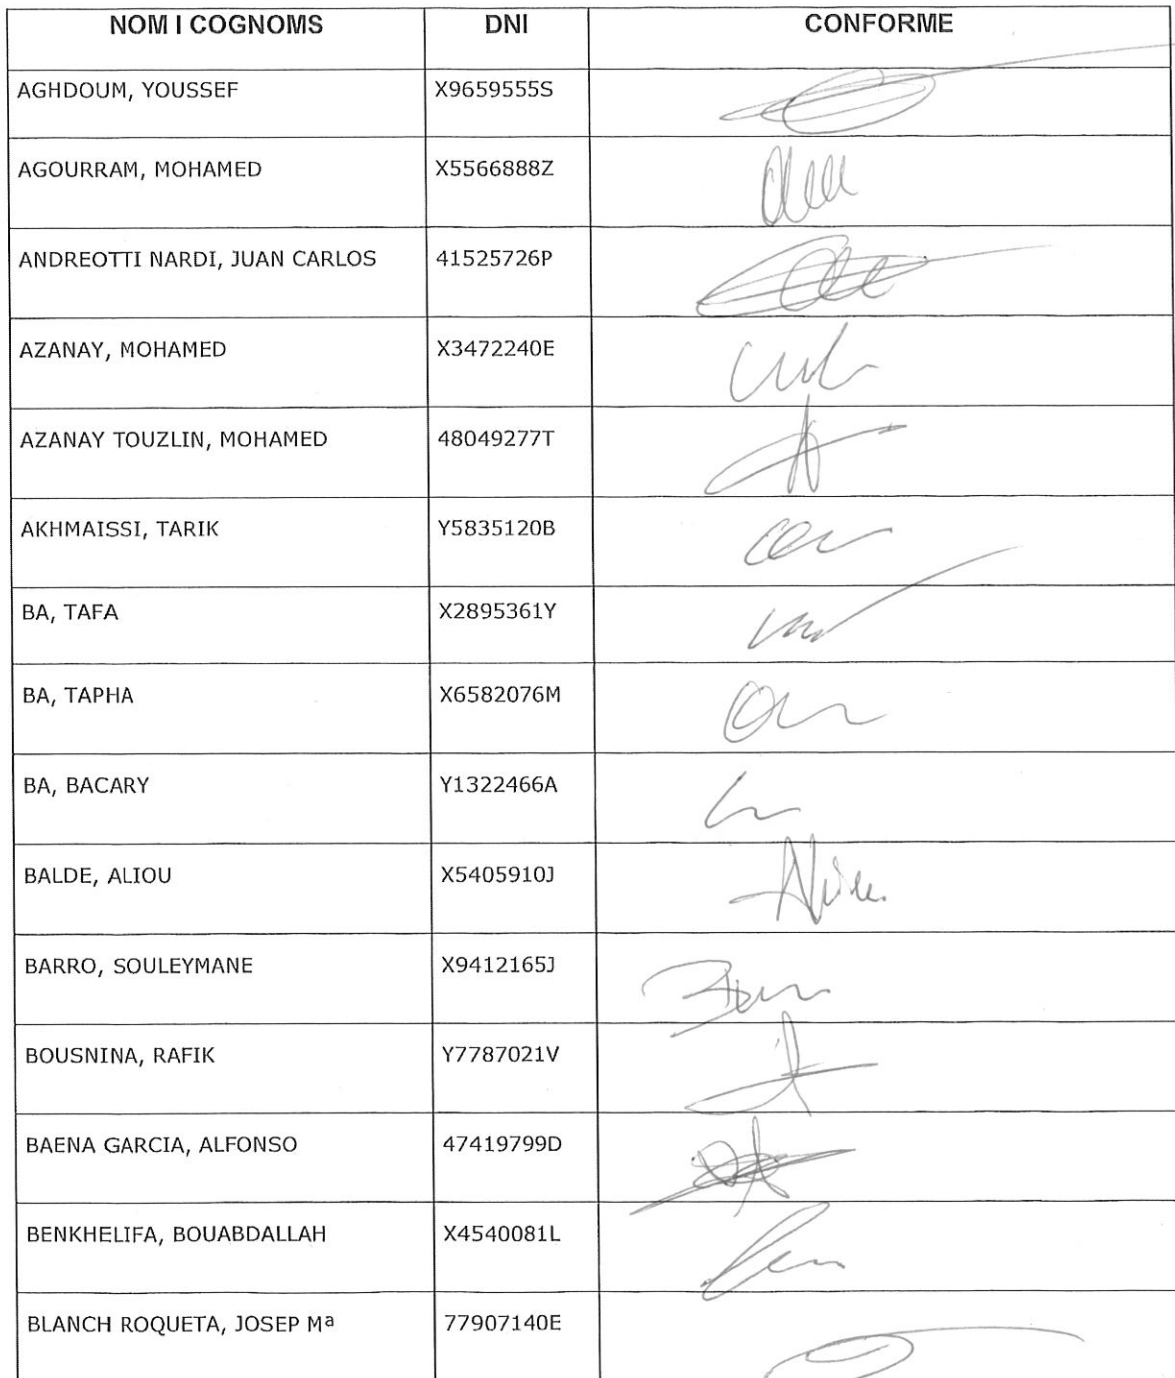 NOM I COGNOMS DNI CONFORME
AGHDOUM, YOUSSEF X9659555S
AGOURRAM, MOHAMED X5566888Z
ANDREOTTI NARDI, JUAN CARLOS 41525726P
AZANAY, MOHAMED X3472240E
AZANAY TOUZLIN, MOHAMED 48049277T
AKHMAISSI, TARIK Y5835120B
BA, TAFA X2895361Y
BA, TAPHA X6582076M
BA, BACARY Y1322466A
BALDE, ALIOU X5405910J
BARRO, SOULEYMANE X9412165J
BOUSNINA, RAFIK Y7787021V
BAENA GARCIA, ALFONSO 47419799D
BENKHELIFA, BOUABDALLAH X4540081L
BLANCH ROQUETA, JOSEP Mª 77907140E